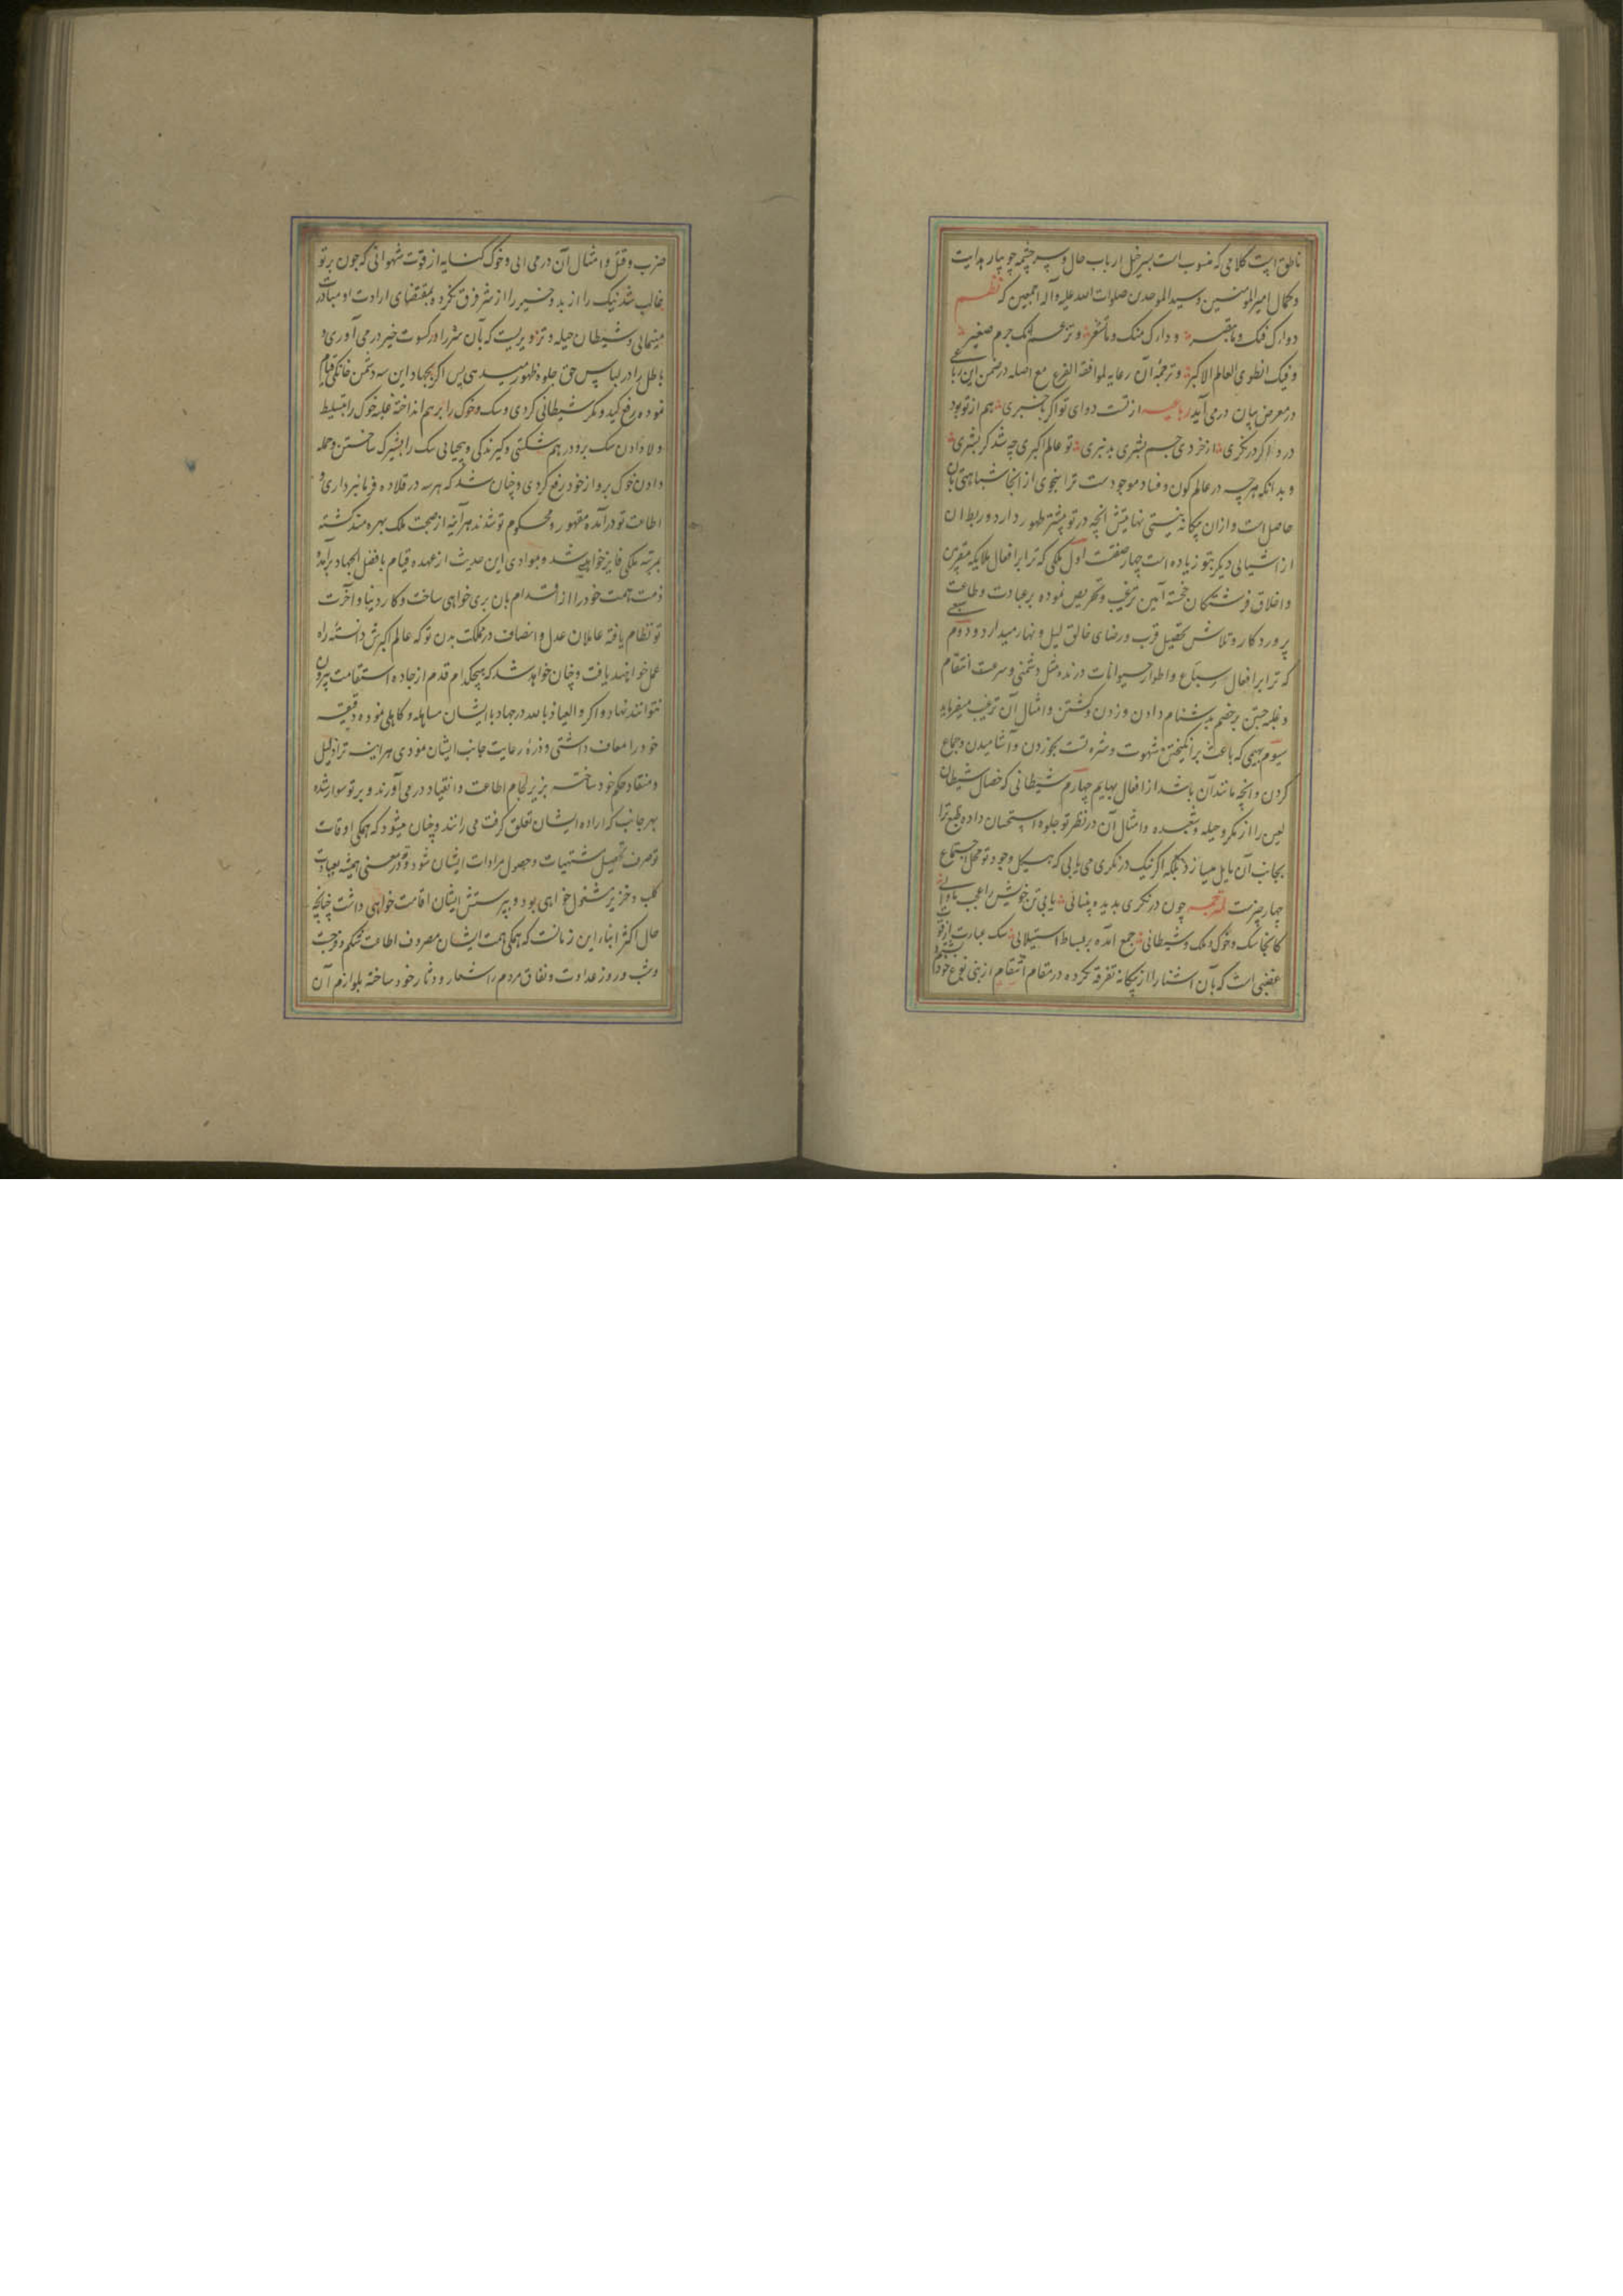 ناطق است کلامی که منسوب است بسر خیل ارباب حال و سر چشمه جویبار هدایت
و کمال امیر المومنین و سید الموحدین صلوات الله علیه و آله اجمعین که نظم
دوارک فیک وما تبصر و دارک منک وما تشعر و تزعم انک جرم صغیر
و فیک انطوی العالم الاکبر و ترجمهٔ آن رعایه لموافقة الفرع مع اصله در ضمن این رباعی
در معرض بیان در می آید رباعیه از تست دوای تو اگر باخبری هم از تو بود
درد اگر درنگری از خردی جسم بشری بدنبری تو عالم اکبری چه شد گر بشری
و بدانکه هر چه در عالم کون و فساد موجودست ترا بنحوی از انجا شباهتی بآن
حاصل است و ازان بیگانه نیستی نهایتش آنچه در تو بیشتر ظهور دارد و ربط آن
از اشیائی دیگر بتو زیاده است چهار صفتست اول ملکی که ترا بر افعال ملایکه مقربین
و اخلاق فرشتگان خجسته آیین ترغیب و تحریص نموده بر عبادت و طاعت
پروردکار و تلاش تحصیل قرب و رضای خالق لیل و نهار میدارد و دوم سبعی
که ترا بر افعال سباع و اطوار حیوانات درنده مثل دشمنی و سرعت انتقام
و غلبه جستن بر خصم بدشنام دادن و زدن و کشتن و امثال آن ترغیب میفرماید
سیوم بهیمی که باعث بر انکیختن شهوت و شره تست بخوردن و آشامیدن و جماع
کردن و آنچه مانند آن باشد از افعال بهایم چهارم شیطانی که خصال شیطان
لعین را از مکر و حیله و شعبده و امثال آن در نظر تو جلوه استحسان داده طبع ترا
بجانب آن مایل میسازد بلکه اگر نیک درنگری می یابی که هیکل وجود تو محل اجتماع
چهار چیزست لمترجمه چون درنگری بدیده بینائی یابی تن خویش را عجب ماوائی
کانجا سک و خوک و ملک و شیطانی جمع آمده بر بساط استیلائی سک عبارت از قوت
غضبی است که بآن آشنا را از بیگانه تفرقه نکرده در مقام انتقام از بنی نوع خود بشتم و
ضرب و قتل و امثال آن در می آیی و خوک کنایه از قوت شهوانی که چون بر تو
غالب شد نیک را از بد و خیر را از شر فرق نکرده بمقتضای ارادت او مبادرت
مینمائی و شیطان حیله و تزویریست که بآن شر را در کسوت خیر در می آوری و
باطل را در لباس حق جلوه ظهور میدهی پس اگر بجهاد این سه دشمن خانگی قیام
نموده رفع کید و مکر شیطانی کردی و سک و خوک را بر هم انداخته غلبه خوک را بتسلیط
و لا دادن سک برو در هم شکستی و گیرندگی و بیحیایی سک را بشیرک ساختن و حمله
دادن خوک برو از خود رفع کردی و چنان شد که هر سه در قلاده فرمانبرداری و
اطاعت تو درآمده مقهور و محکوم تو شدند هر آینه از صحبت ملک بهره مند گشته
بمرتبه ملکی فایز خواهی شد و بموادی این حدیث از عهده قیام بافضل الجهاد برآمده
ذمت همت خود را از اقدام بان بری خواهی ساخت و کار دنیا و آخرت
تو نظام یافته عاملان عدل و انصاف در مملکت بدن تو که عالم اکبرش دانستهٔ راه
عمل خواهند یافت و چنان خواهد شد که هیچکدام قدم از جاده استقامت بیرون
نتوانند نهاد و اگر و العیاذ بالله در جهاد با ایشان مساهله و کاهلی نموده دقیقه
خود را معاف داشتی و ذرهٔ رعایت جانب ایشان نمودی هر اینه ترا ذلیل
و منقاد حکم خود ساخته بزیر لجام اطاعت و انقیاد در می آورند و بر تو سوار شده
بهر جانب که اراده ایشان تعلق گرفت می رانند و چنان میشود که همکی اوقات
تو صرف تحصیل مشتهیات و حصول مرادات ایشان شود و تو در معنی همیشه بعبادت
کلب و خنزیر مشغول خواهی بود و بپرستش ایشان اقامت خواهی داشت چنانچه
حال اکثر ابناء این زمانست که همکی همت ایشان مصروف اطاعت شکم و فرجست
و شب و روز عداوت و نفاق مردم را شعار و دثار خود ساخته بلوازم آن